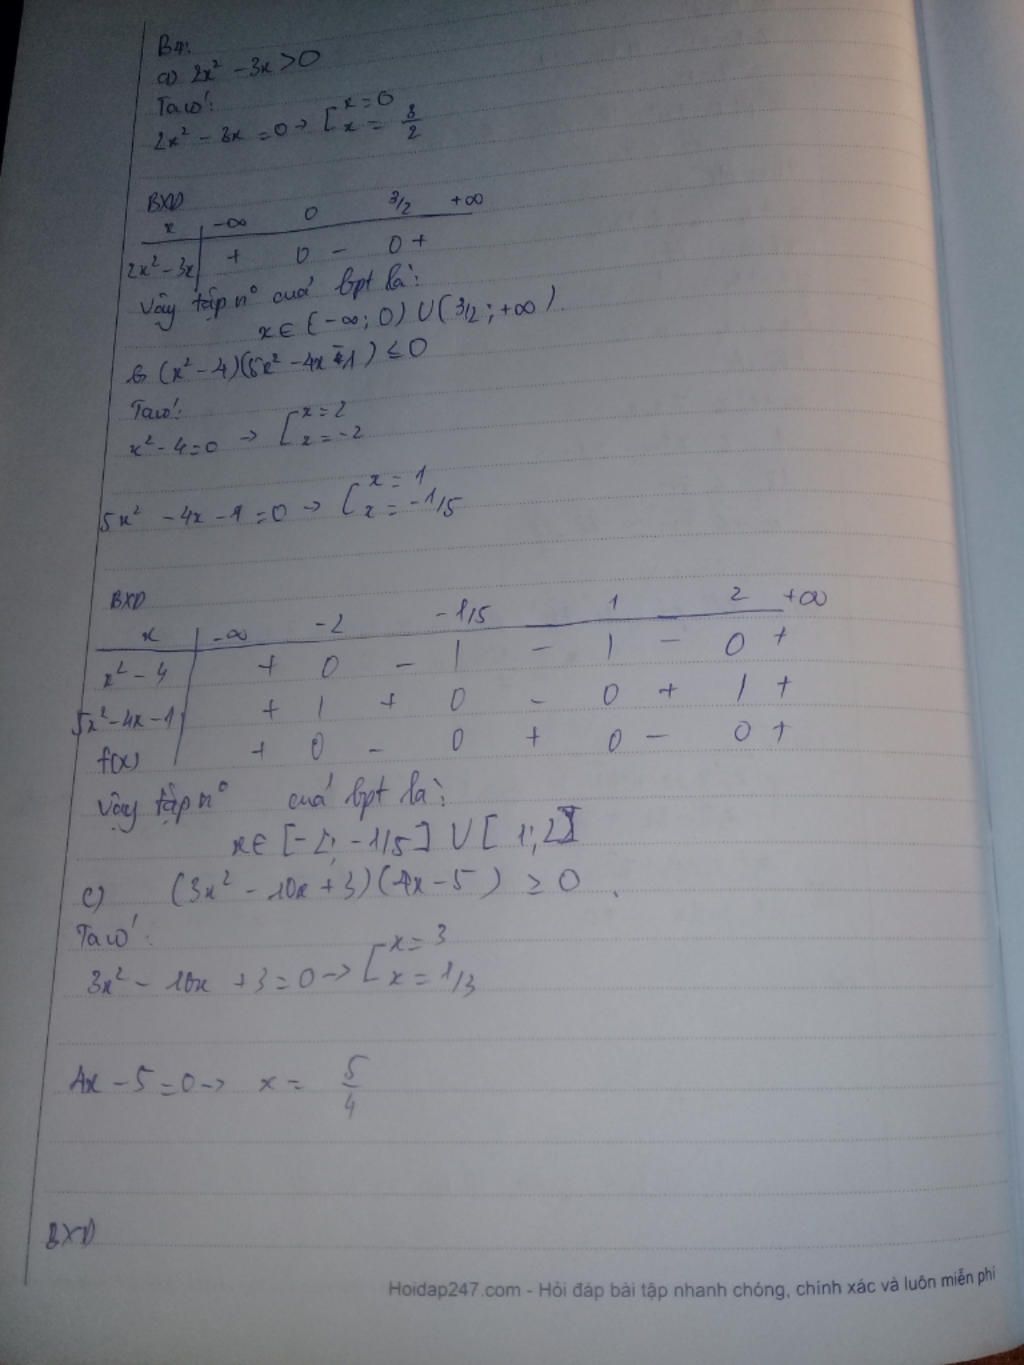 B4:
a) 2x² - 3x > 0
Ta có:
2x² - 3x = 0 → [ x = 0
x = 3/2
BXD
x | -∞ 0 3/2 +∞
2x² - 3x | + 0 - 0 +
Vậy tập n° cuả bpt là:
x ∈ (-∞; 0) U (3/2; +∞).
b (x² - 4)(5x² - 4x - 1) ≤ 0
Ta có:
x² - 4 = 0 → [ x = 2
x = -2
5x² - 4x - 1 = 0 → [ x = 1
x = -1/5
BXD
x | -∞ -2 -1/5 1 2 +∞
x² - 4 | + 0 - | - | - 0 +
5x² - 4x - 1 | + | + 0 - 0 + | +
f(x) | + 0 - 0 + 0 - 0 +
Vậy tập n° cuả bpt là:
x ∈ [-2; -1/5] U [1; 2]
c) (3x² - 10x + 3)(4x - 5) ≥ 0.
Ta có:
3x² - 10x + 3 = 0 → [ x = 3
x = 1/3
4x - 5 = 0 → x = 5/4
BXD
Hoidap247.com - Hỏi đáp bài tập nhanh chóng, chính xác và luôn miễn phí